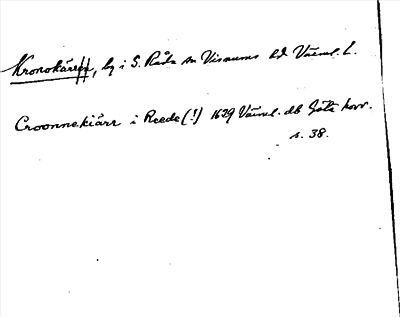 Kronokärr, by i S. Råda sn Visnums hd Värml. l.
Croonnekiärr i Reede (!) 1639 Värml. db Göta hovr.
s. 38.